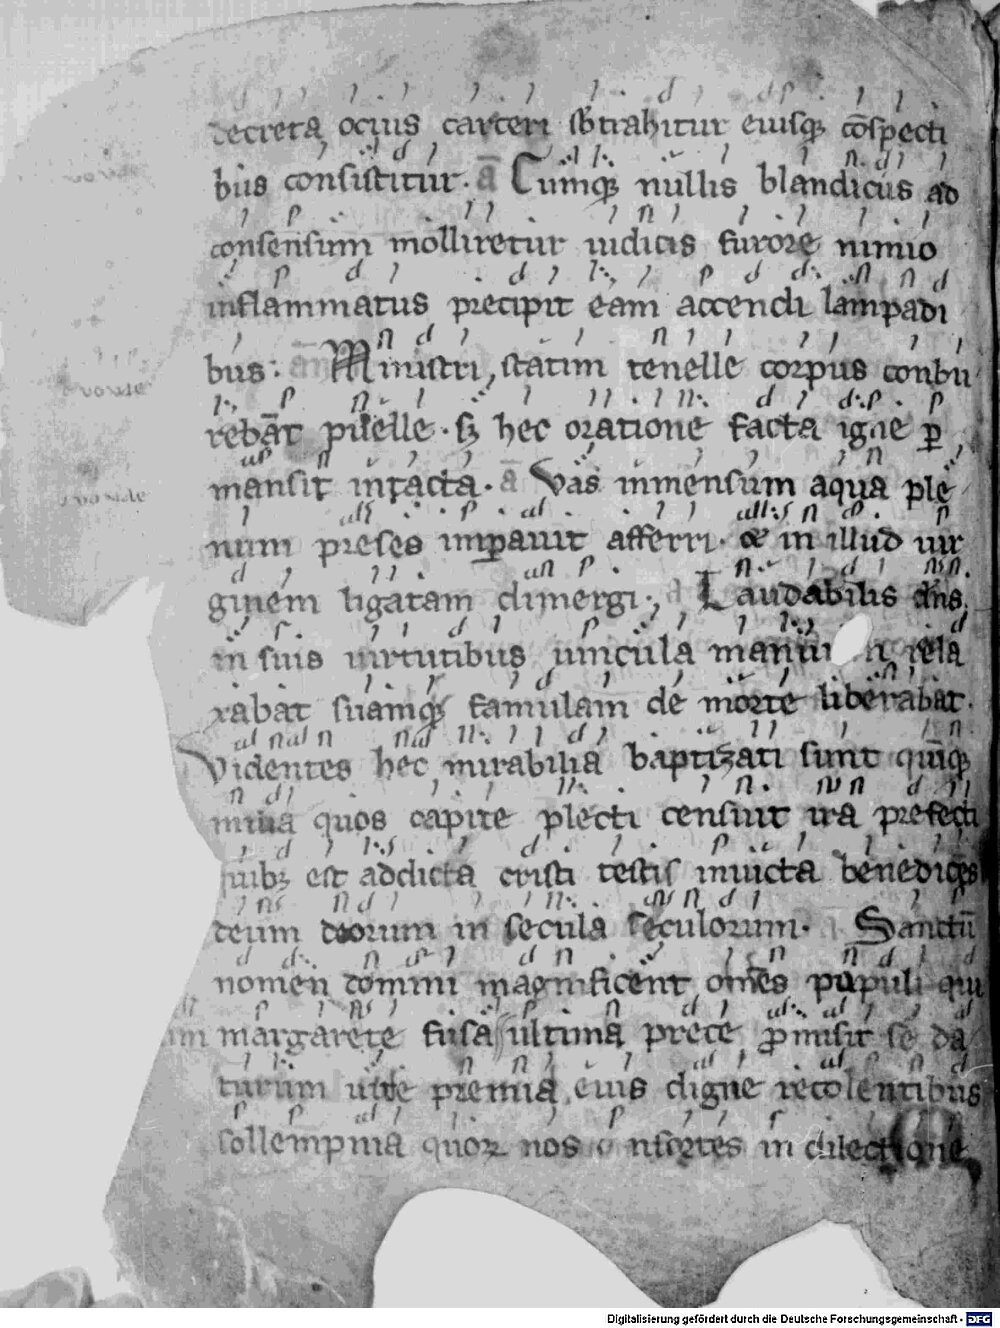 decreta ocius carceri sb̄trahitur eiusq; cōspecti
bus consistitur. ā Cumq; nullis blandicus ad
consensum molliretur iudicis furore nimio
inflammatus precipit eam accendi lampadi
bus: ā Ministri, statim tenelle corpus conbu
rebāt puelle. sꝫ hec oratione facta igne ꝑ
mansit intacta. ā Vas inmensum aqua ple
num preses imꝑauit afferri. & in illud uir
ginem ligatam dimergi; a Laudabilis dn̄s
in suis uirtutibus uincula manuu n rela
xabat suamq; famulam de morte liberabat.
Videntes hec mirabilia baptizati sunt quiq;
milia quos capite plecti censuit ira prefecti
quibꝫ est addicta cristi testis inuicta benedices
deum deorum in secula seculorum. a Sanctū
nomen domini magnificent om̄es pupuli qui
im margarete fusa ultima prece ꝓmisit se da
turum uite premia eius digne recolentibus
sollempnia quoꝝ nos consortes in dilectione
vo
vo
vo
Digitalisierung gefördert durch die Deutsche Forschungsgemeinschaft - DFG